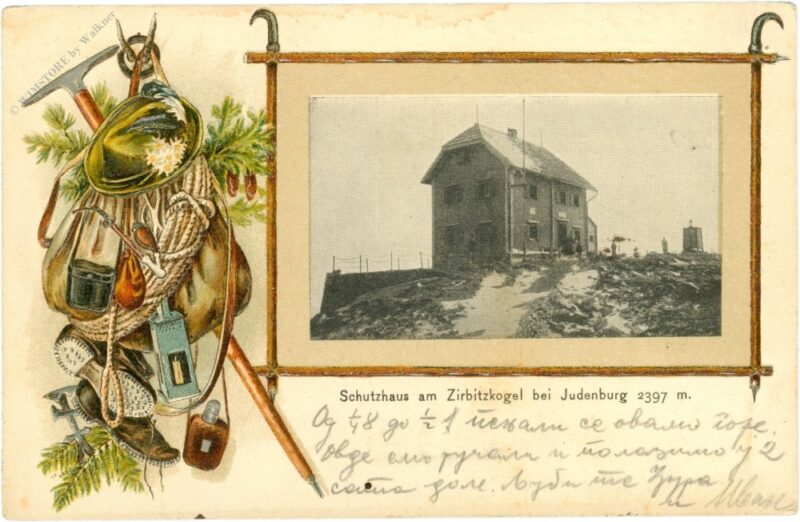 © WIMSTORE by Walkner
Schutzhaus am Zirbitzkogel bei Judenburg 2397 m.
Од ¼8 до ½1 пењали се овамо горе.
Овде смо ручали и полазимо у 2
сата доле. Љуби те Ђура
и Иван